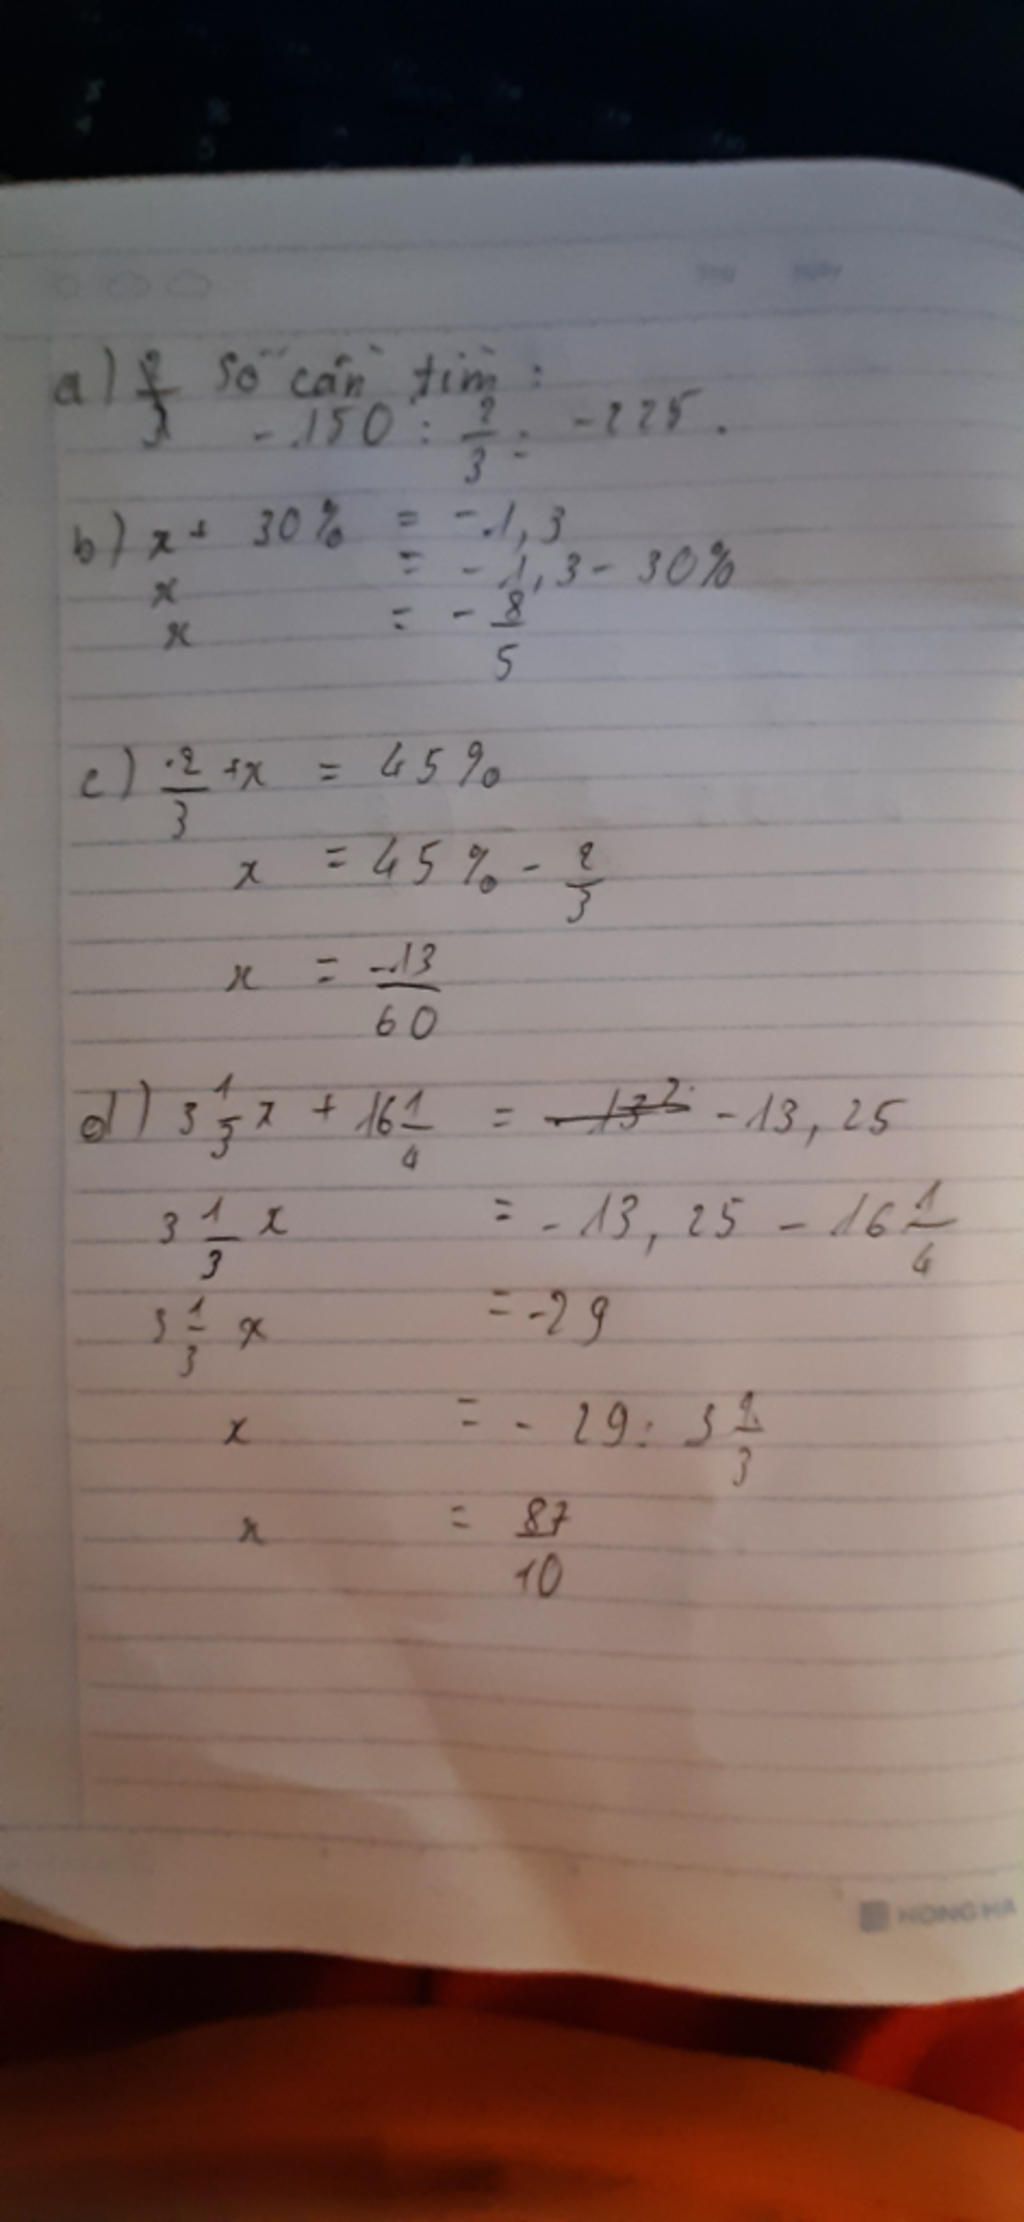 a) 2/3 Số cần tìm:
-150 : 2/3 = -225.
b) x + 30% = -1,3
x = -1,3 - 30%
x = -8/5
c) 2/3 + x = 45%
x = 45% - 2/3
x = -13/60
d) 3 1/3 x + 16 1/4 = -13,25
3 1/3 x = -13,25 - 16 1/4
3 1/3 x = -29
x = -29 : 3 1/3
x = 87/10
HONG HA